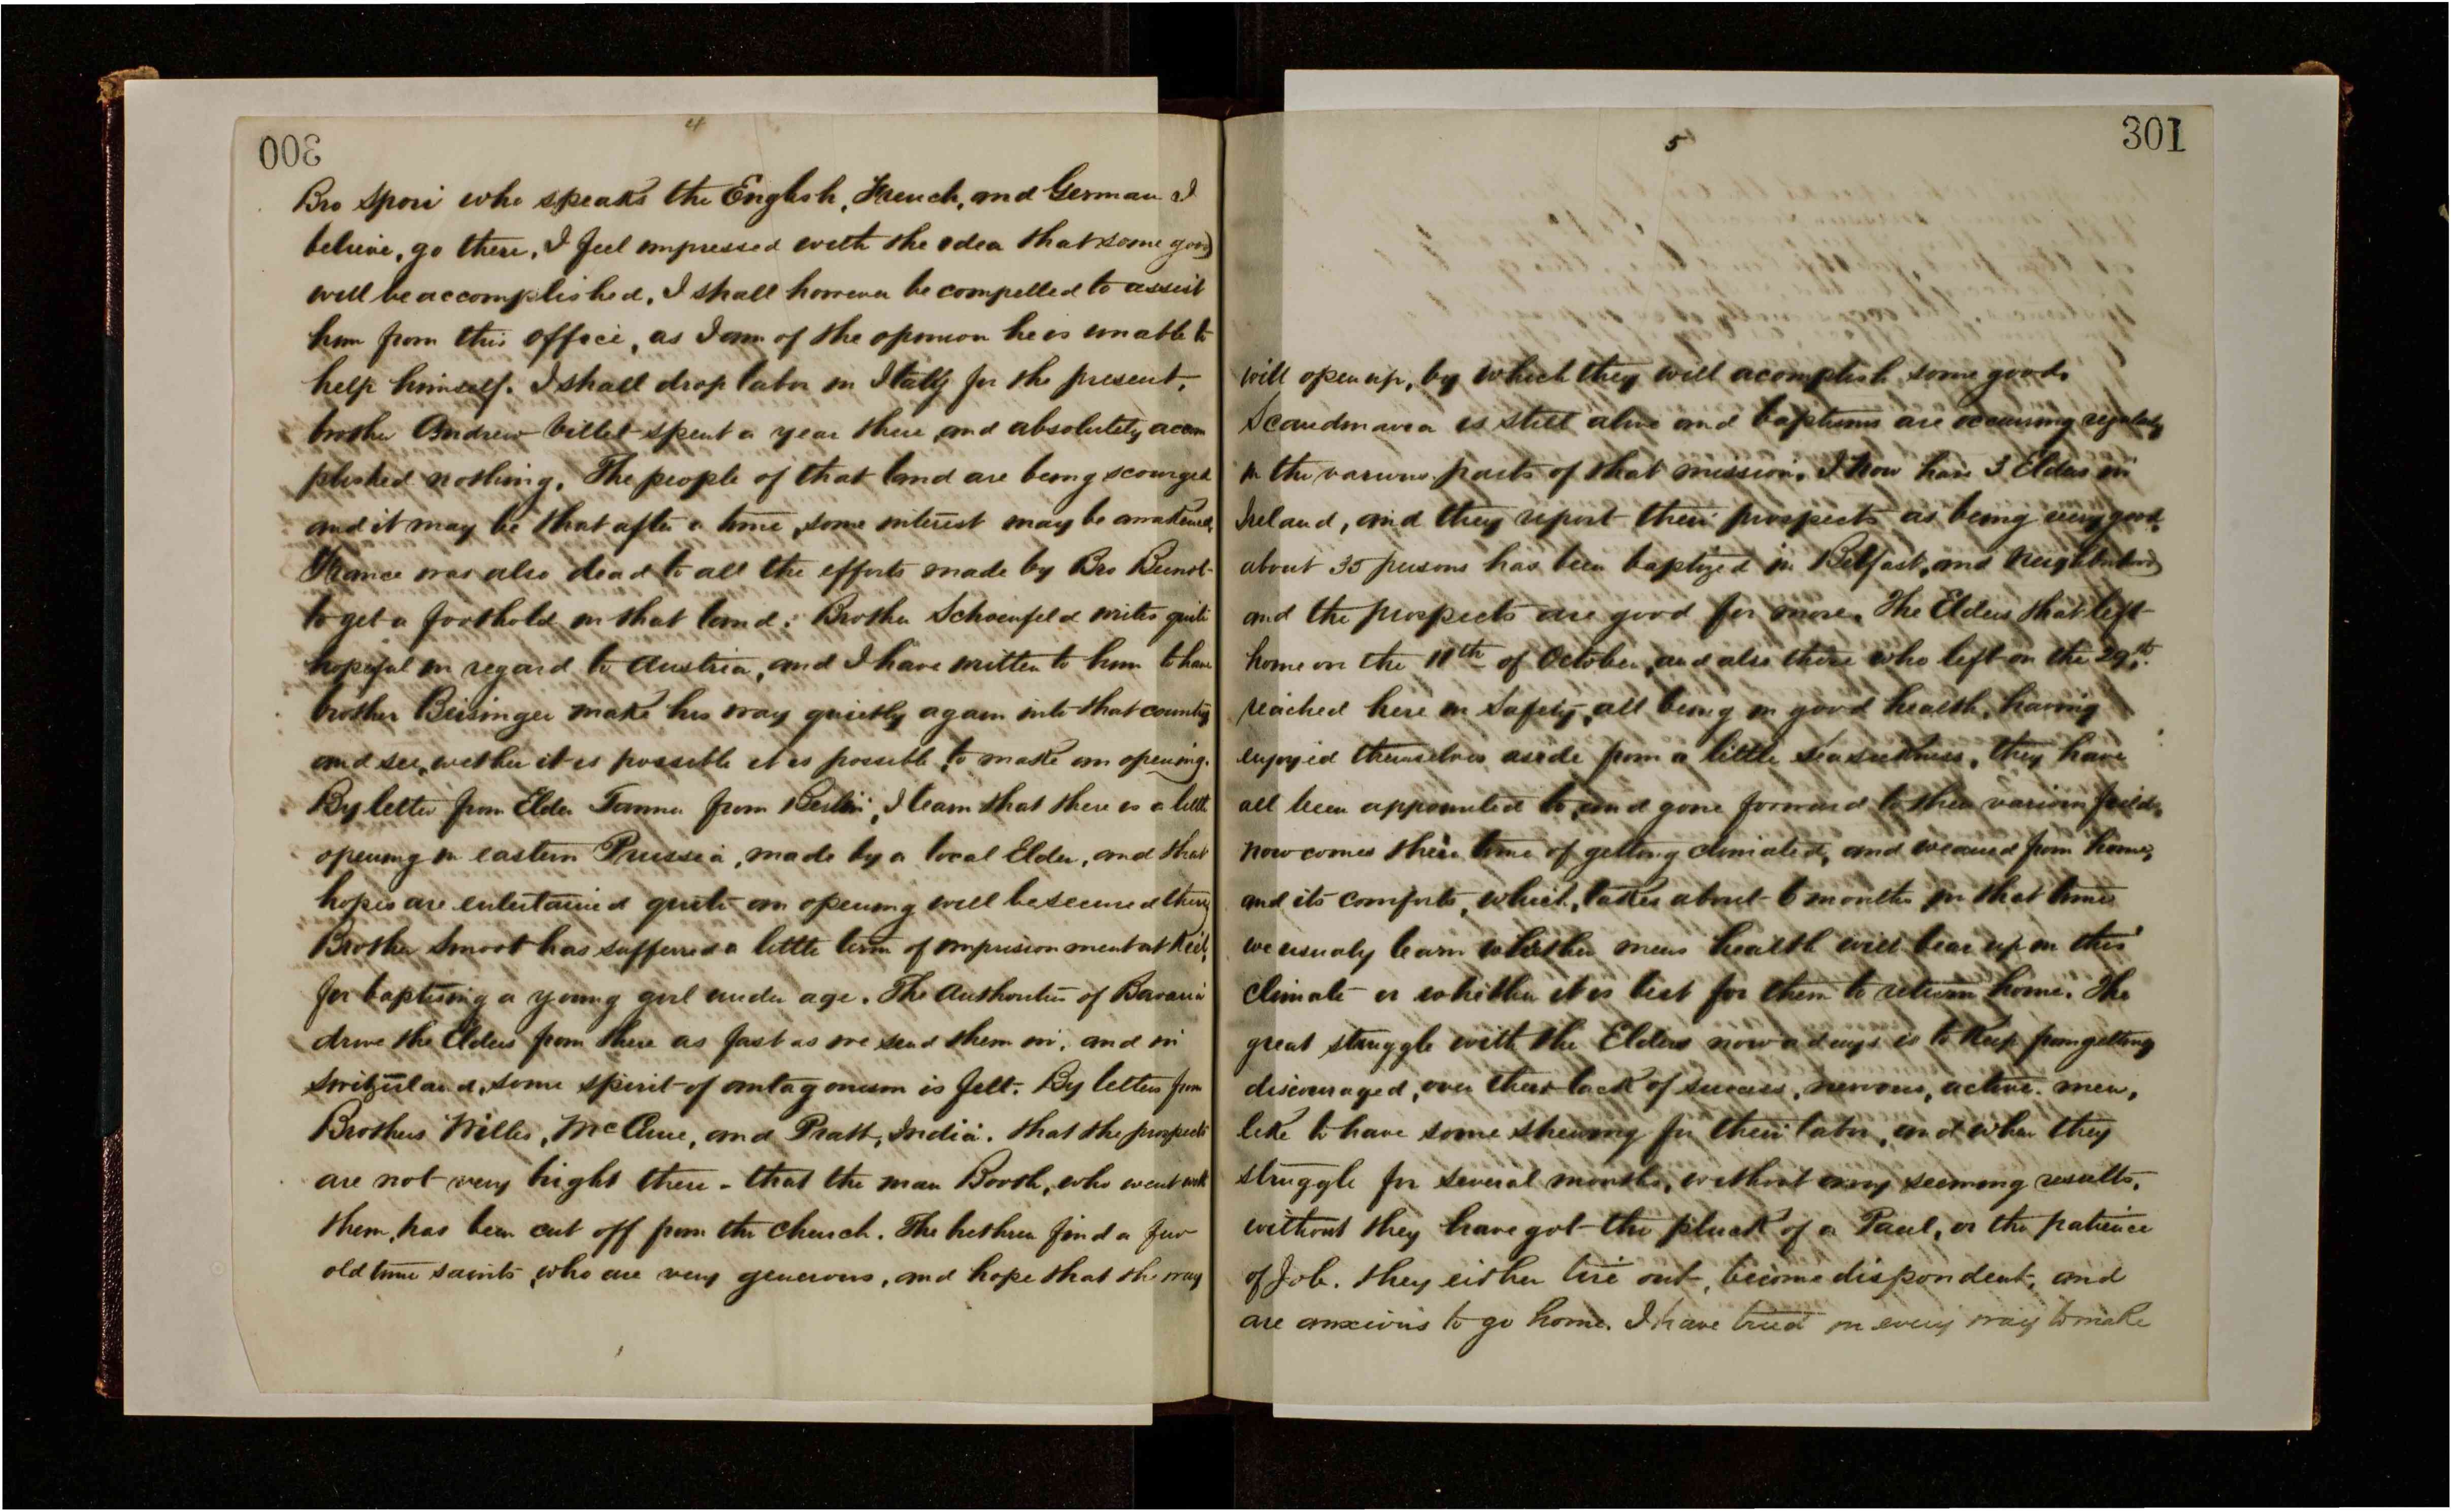 300
4
Bro Spori who speaks the English, French, and German I
believe, go there, I feel impressed with the idea that some good
will be accomplished, I shall however be compelled to assist
him from this office, as I am of the opinion he is unable to
help himself. I shall drop labor in Itally for the present,
brother Andrew billet spent a year there and absolutely acom
plished nothing, The people of that land are being scourged
and it may be that after a time, some interest may be awakened,
France was also dead to all the efforts made by Bro Bunot
to get a foothold in that land: Brother Schoenfeld writes quite
hopeful in regard to Austria, and I have written to him to have
brother Beisinger make his way quietly again into that country
and see, wether it is possible it is possible, to make an opening.
By letter from Elder Tanner from Berlin, I learn that there is a little
opening in eastern Prussia, made by a local Elder, and that
hopes are entertained quite an opening will be secured there,
Brother Smoot has sufferred a little term of imprisionment at Keil,
for baptising a young girl under age. The Authorities of Bavaria
drive the Elders from there as fast as we send them in, and in
Switzerland, some spirit of antagonism is felt. By letters from
Brothers Willes, McCune, and Pratt, India. that the prospects
are not very bright there - that the man Booth, who went with
them, has been cut off from the church. The brethren find a few
old time saints, who are very generous, and hope that the way
301
5
will open up, by which they will acomplish some good.
Scandinavia is still alive and baptisms are occuring regularly
in the various parts of that mission. I now have 3 Elders in
Ireland, and they report their prospects as being very good,
about 35 persons has been baptized in Belfast, and Neighborhood
and the prospects are good for more. The Elders that left
home on the 11th of October, and also those who left on the 29th.
reached here in Safety, all being in good health, having
enjoyed themselves aside from a little seasickness, they have
all been appointed to, and gone forward to their various fields,
now comes their time of getting climated, and weaned from home,
and its comforts, which, takes about 6 months in that time
we usualy learn whether mens health will bear up in this
climate or whither it is best for them to return home. The
great struggle with the Elders now a days is to keep from getting
discouraged, over their lack of success, nervous, active men,
like to have some shewing for their labor, and when they
struggle for several months, without any seeming results,
without they have got the pluck of a Paul, or the patience
of Job. they either tire out, become dispondent, and
are anxious to go home. I have tried in every way to make